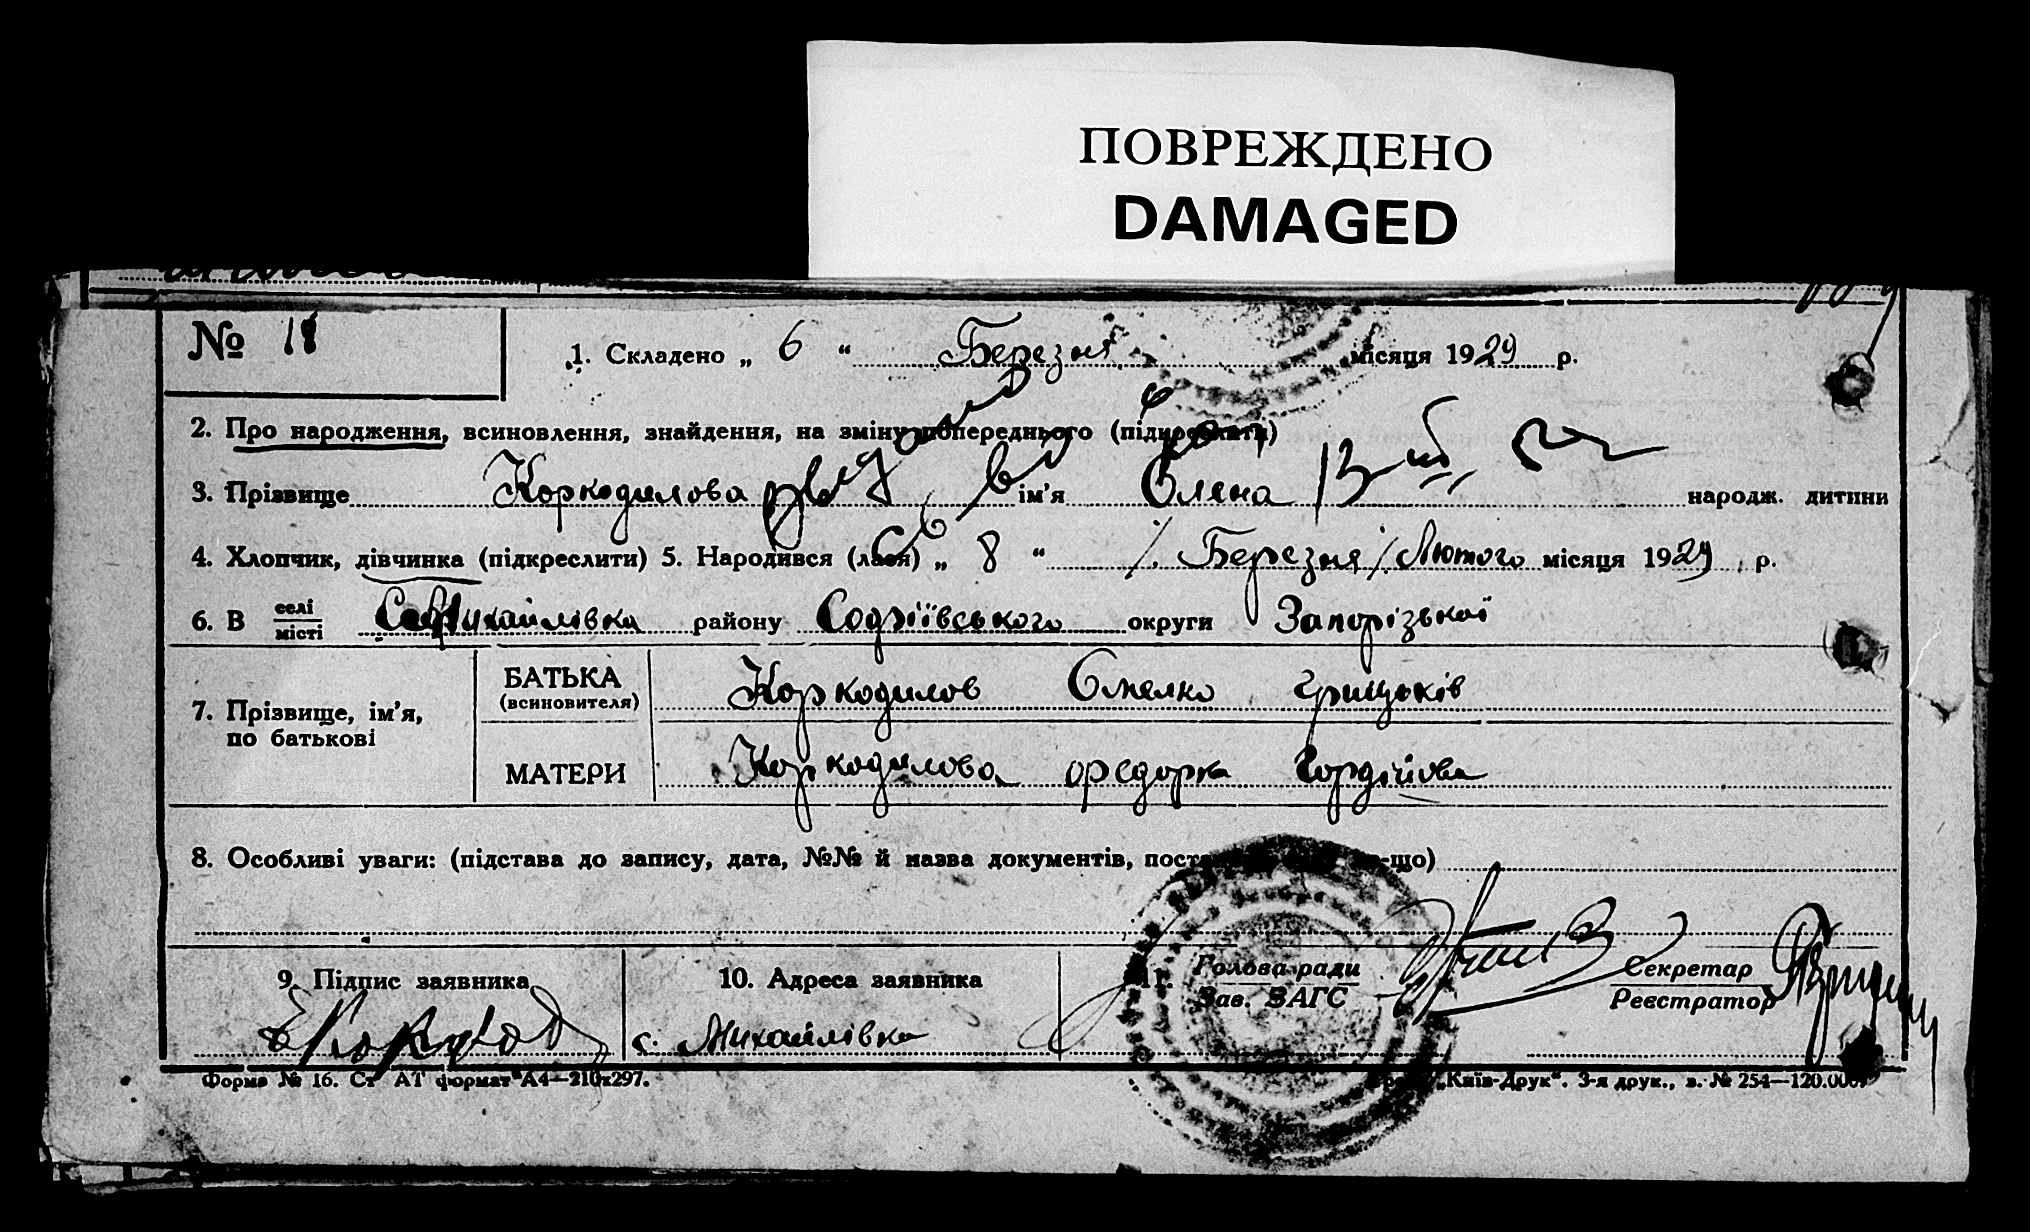 ПОВРЕЖДЕНО
DAMAGED
№ 18
1. Складено „ 6 “ Березня місяця 1929 р.
2. Про народження, всиновлення, знайдення, на зміну попереднього (підкреслити)
3. Прізвище Коркодилова ім’я Олена народж. дитини
4. Хлопчик, дівчинка (підкреслити) 5. Народився (лася) „ 8 “ /. Березня /. Лютого місяця 1929 р.
6. В селі місті Михайлівка району Софіївського округи Запорізької
7. Прізвище, ім’я, по батькові
БАТЬКА (всиновителя) Коркодилов Омелко Грицьків
МАТЕРИ Коркодилова Федорка Гордійова
8. Особливі уваги: (підстава до запису, дата, №№ й назва документів, -що)
9. Підпис заявника 10. Адреса заявника 11. Голова ради Секретар
Зав. ЗАГС Реєстратор
с. Михайлівка
Форма № 16. Ст АТ формат А4—210х297. „Київ-Друк“. 3-я друк., з. № 254—120.000